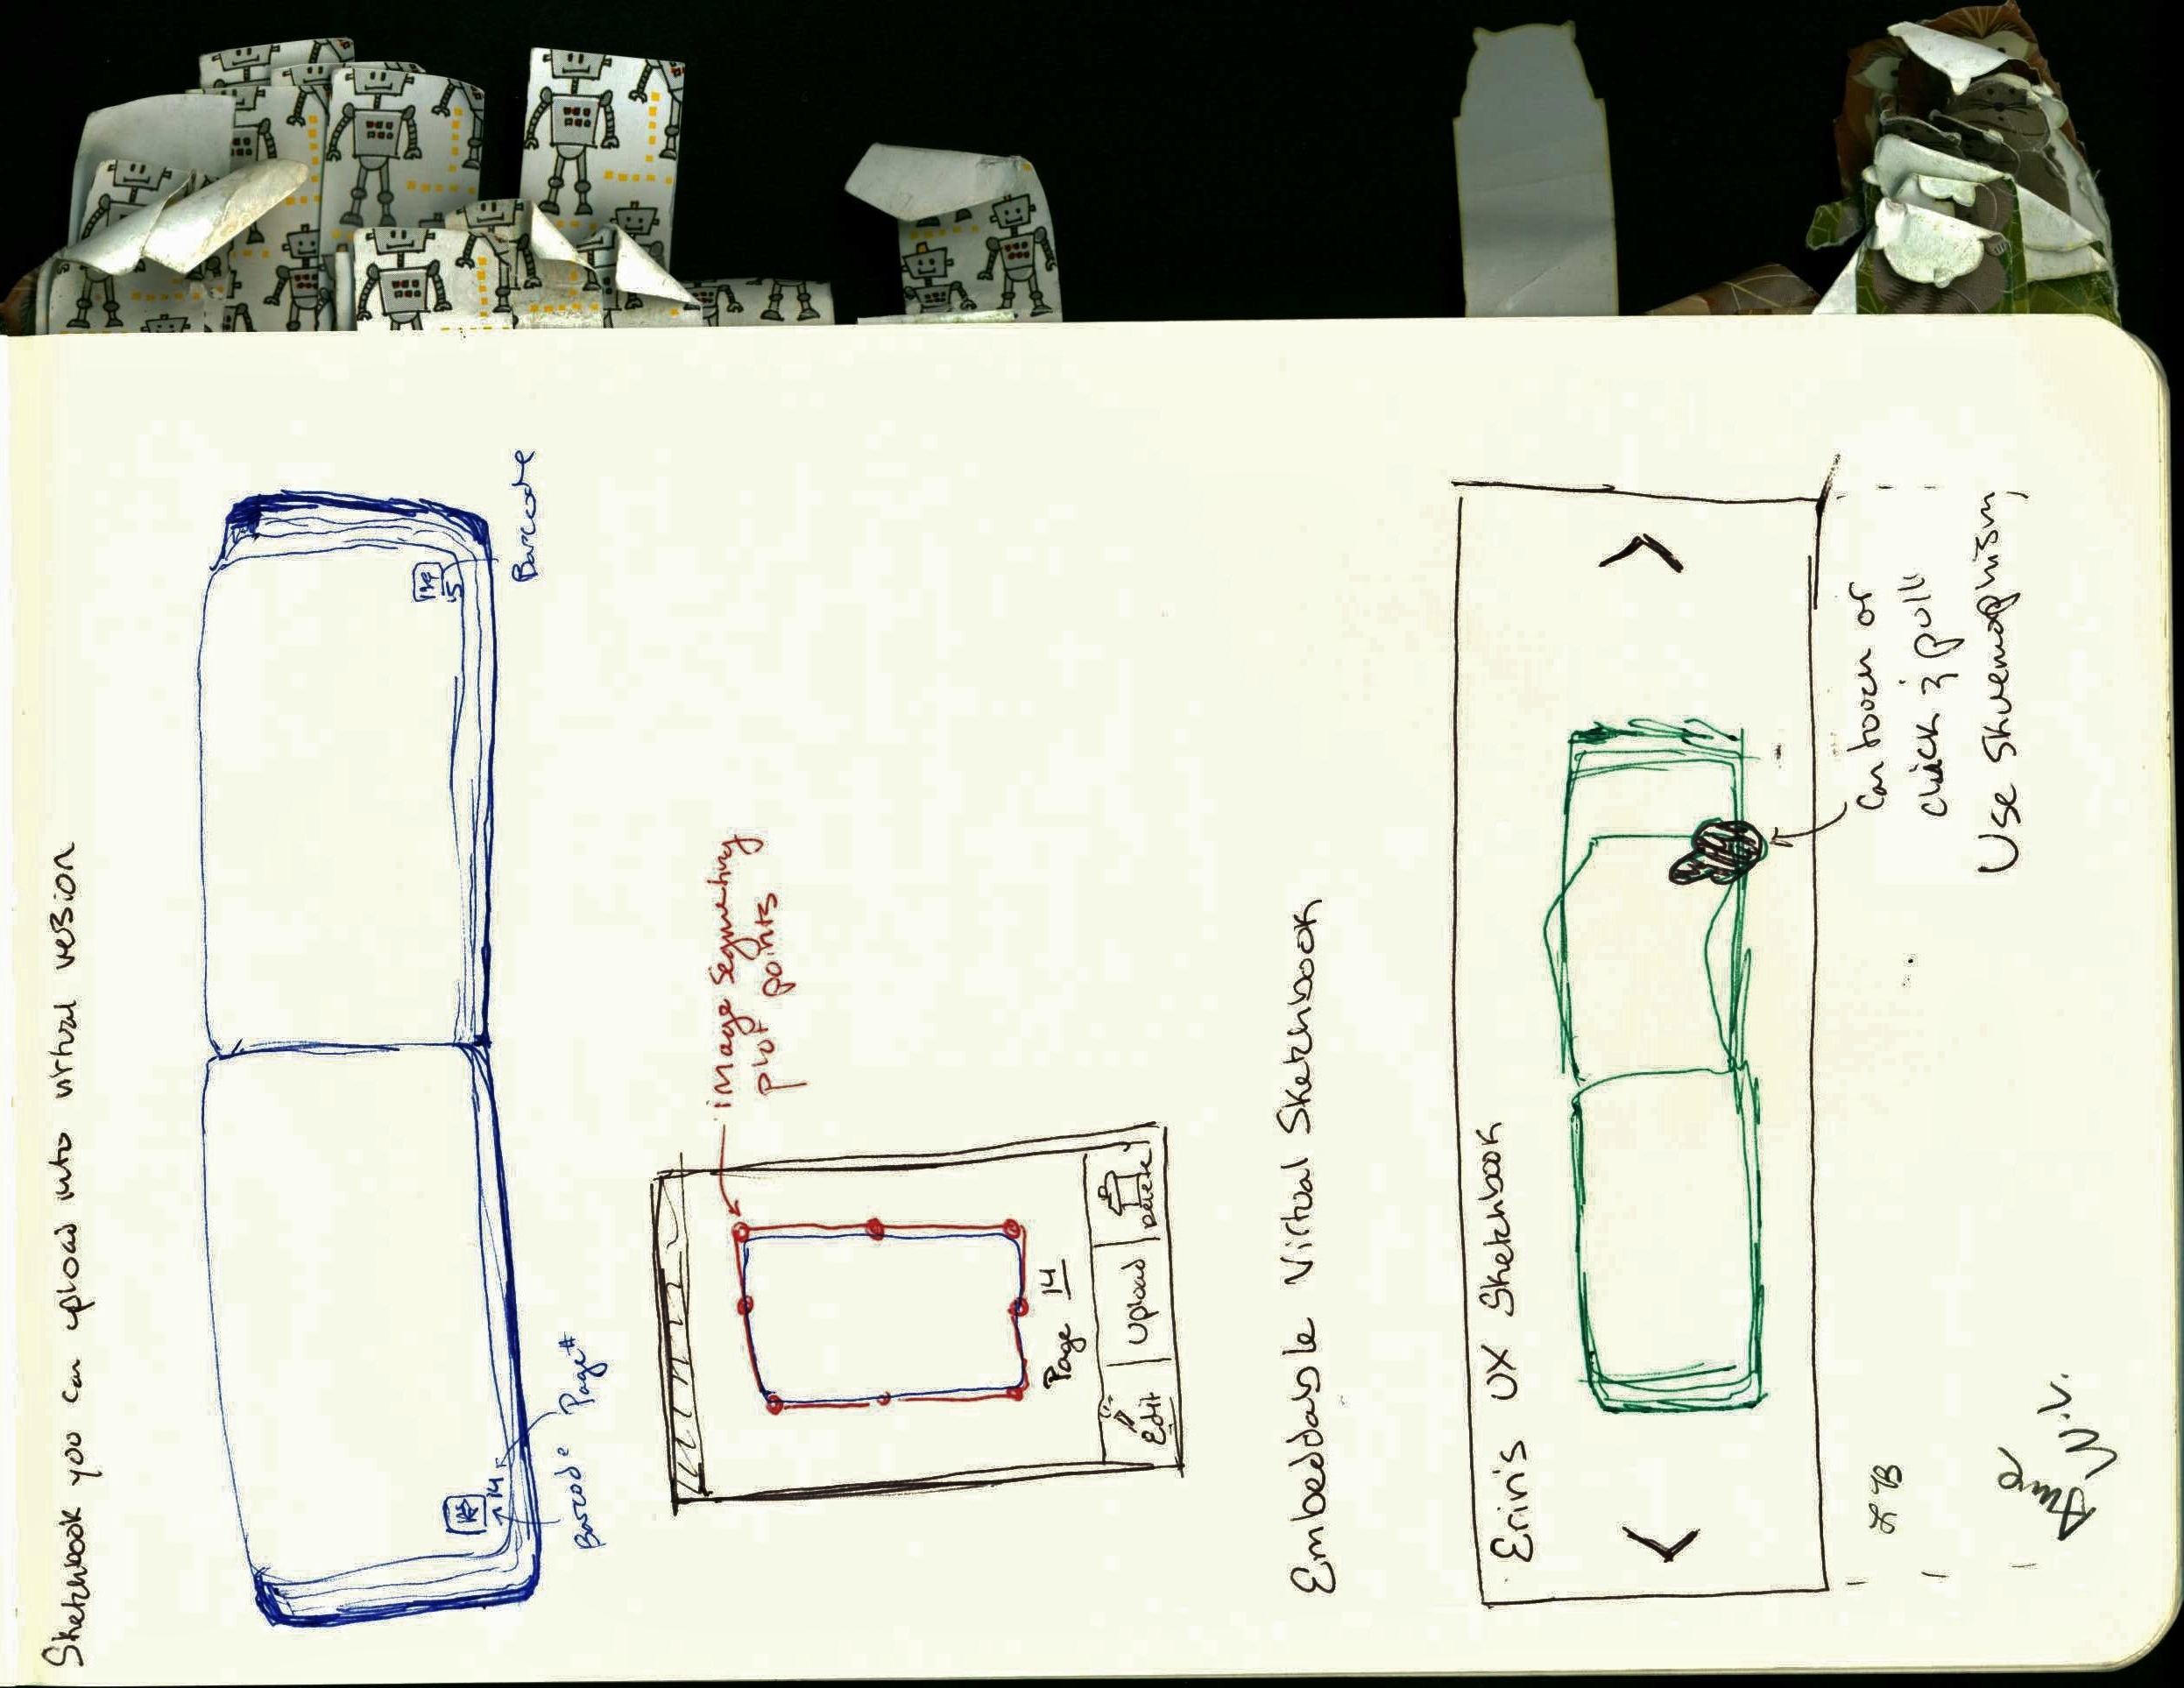 Sketchbook you can upload into virtual version
Barcode
15
14
Barcode
Page#
image segmenting
plot points
Page 14
Edit
Upload
Delete
Embeddable Virtual Sketchbook
Erin's UX Sketchbook
Can touch or
click & pull
Use Skuemorphism